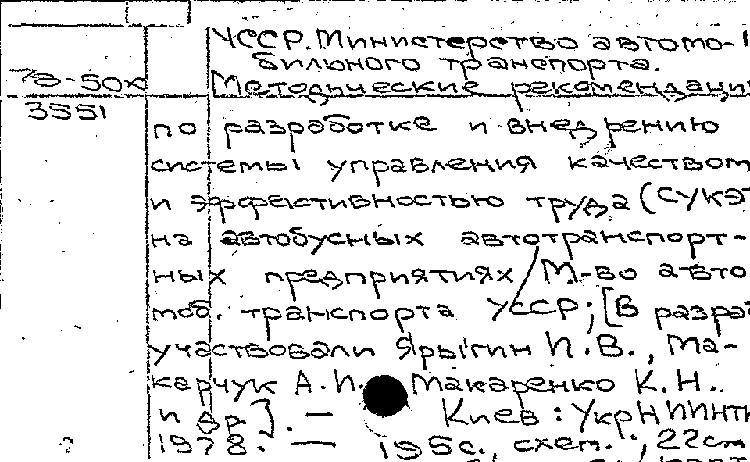 УССР. Министерство автомо-
бильного транспорта.
78-50х Методические рекомендации
3551
по разработке и внедрению
системы управления качеством
и эффективностью труда (СУКЭ
на автобусных автотранспорт-
ных предприятиях / М-во авто
моб. транспорта УССР; [В разраб
участвовали Ярыгин И.В., Ма-
карчук А.И. Макаренко К.Н.
и др]. — Киев: УкрНИИНТИ
1978. — 195с., схем.; 22см